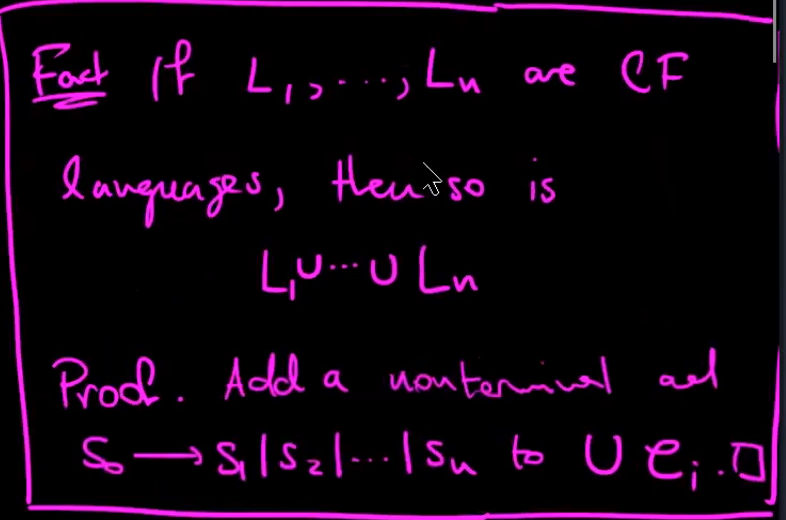 Fact If L₁,...,Lₙ are CF
languages, then so is
L₁∪...∪Lₙ
Proof. Add a nonterminal and
S₀→S₁|S₂|...|Sₙ to ∪ e_i. □